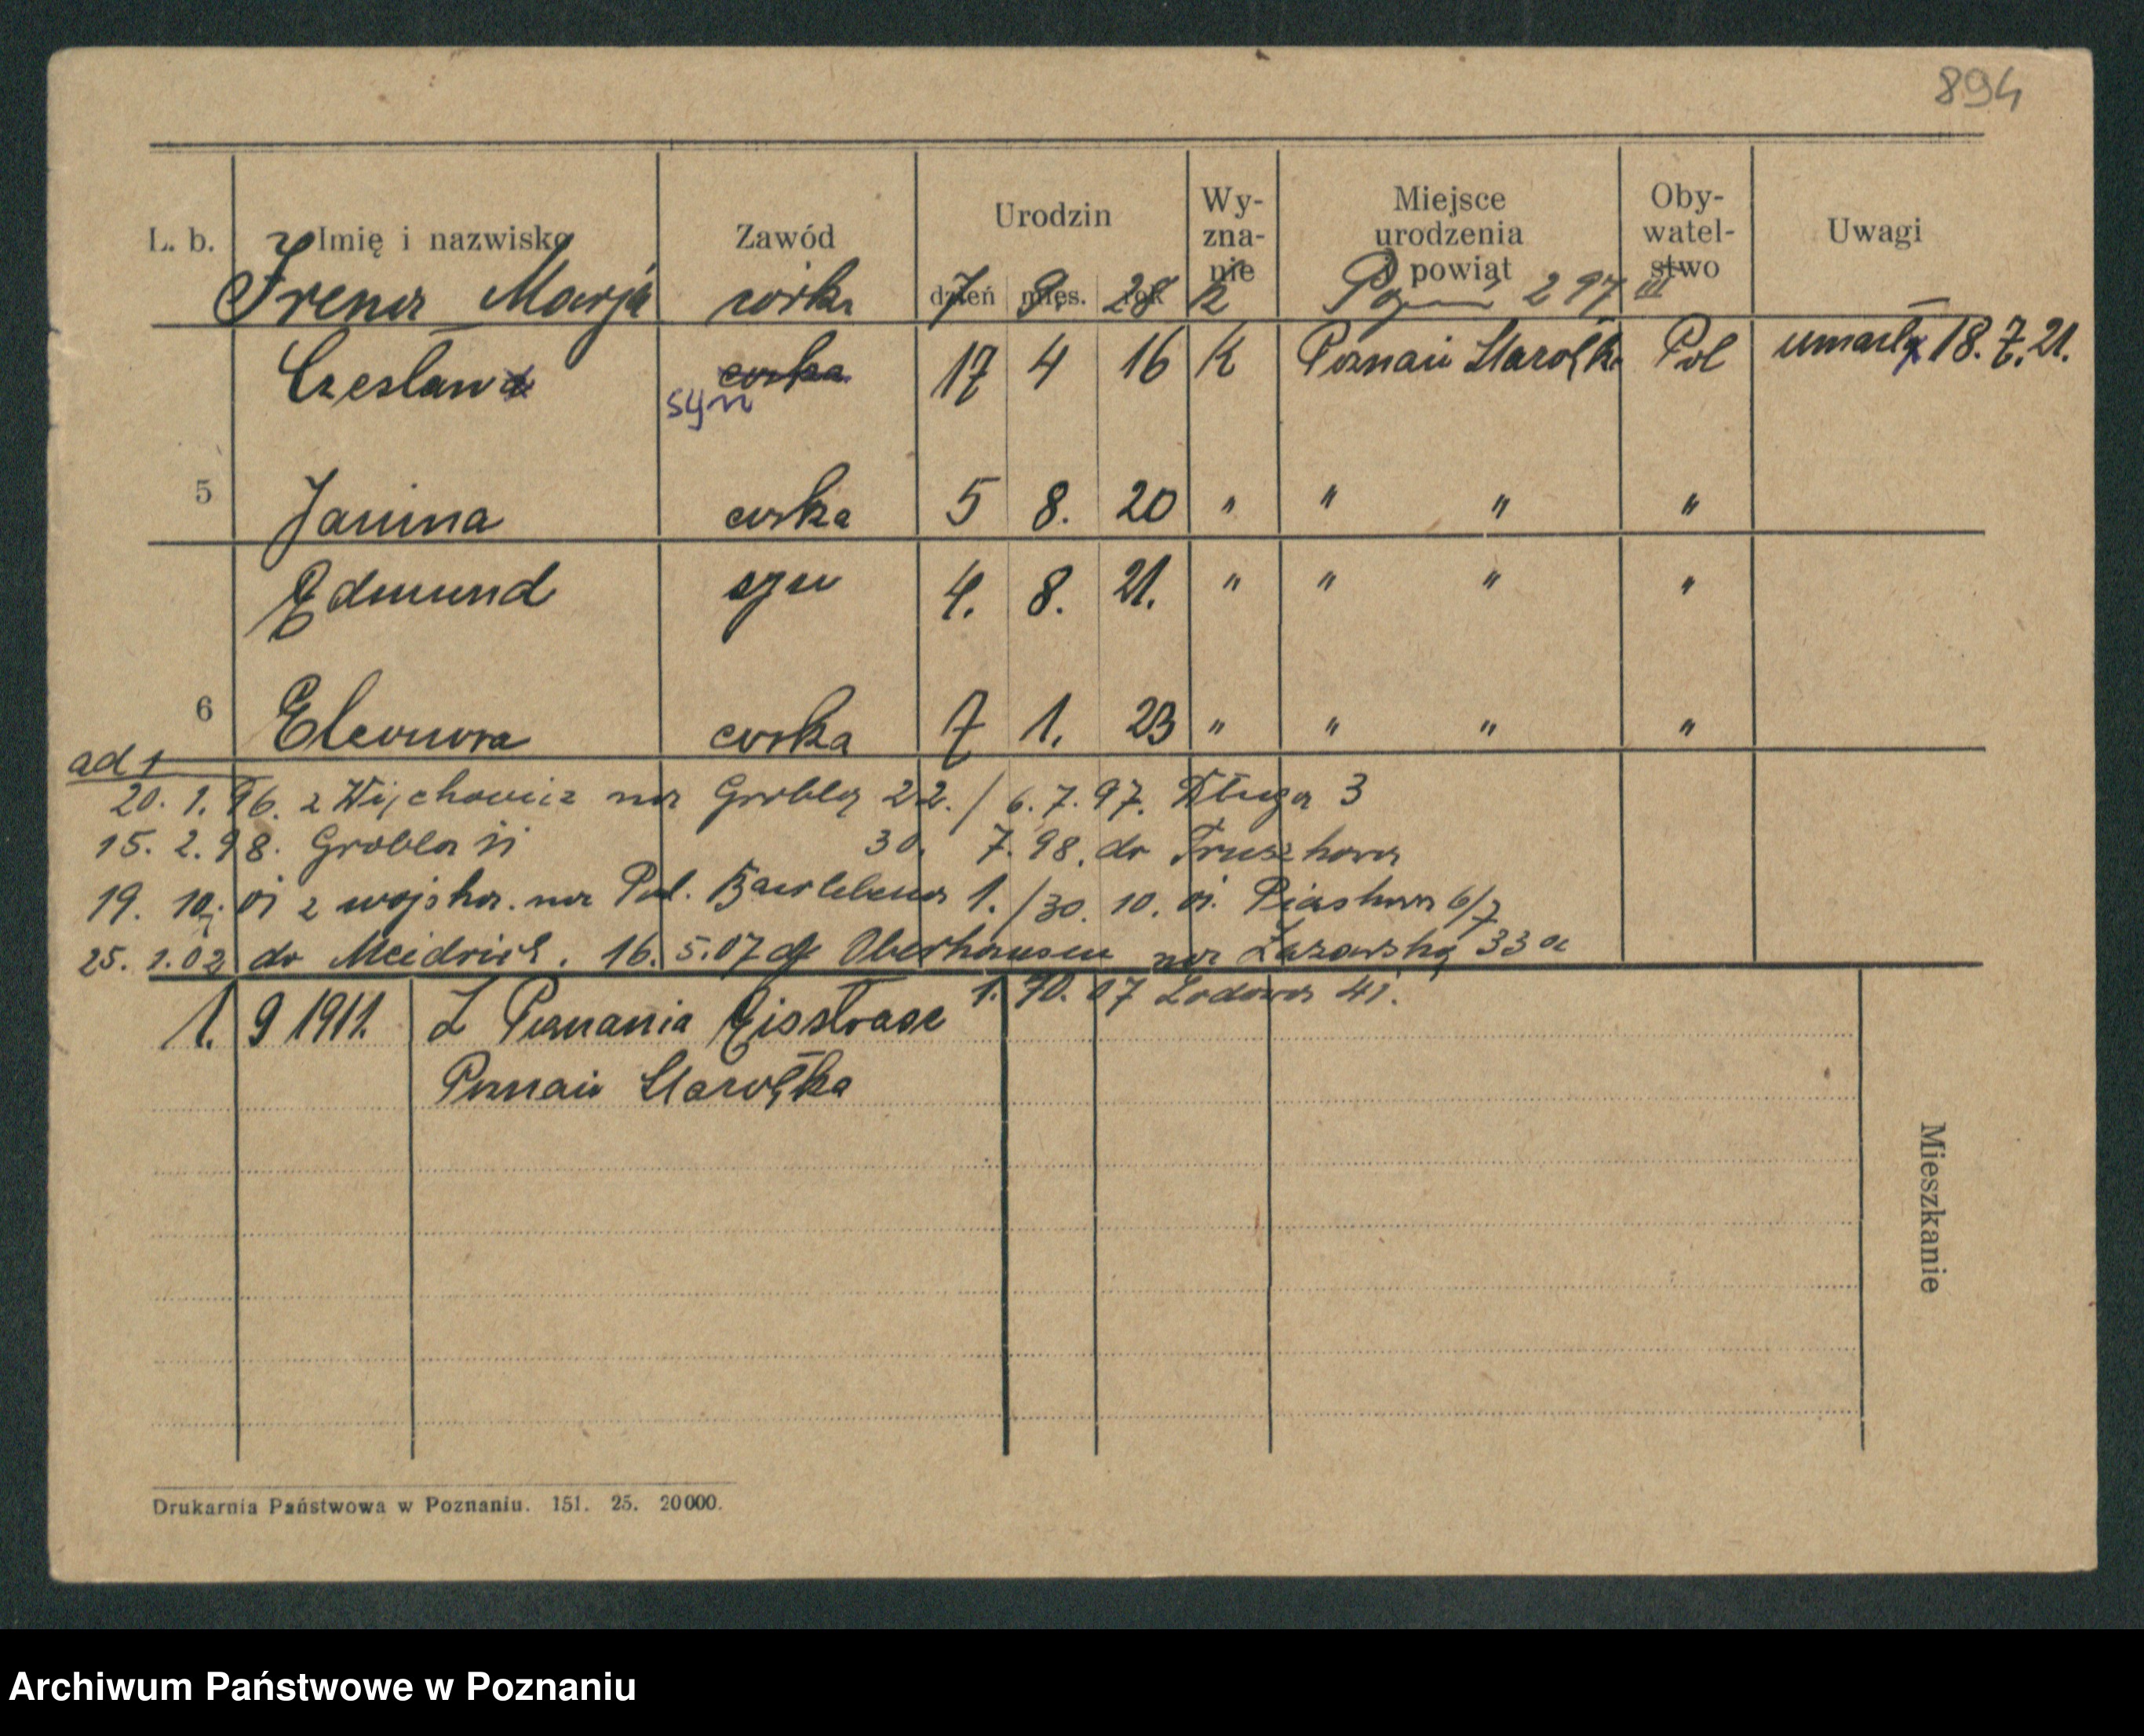 894
L. b. Imię i nazwisko Zawód Urodzin dzień mies. rok Wy-zna-nie Miejsce urodzenia i powiat Oby-watel-stwo Uwagi
Irena Marja córka 7 9. 28 K 297 III
Czesława corka 17 4 16 K Poznań Starołęka Pol umarły 18.7.21.
syn
5 Janina corka 5 8. 20 " " " "
Edmund syn 4. 8. 21. " " " "
6 Eleonora corka 7 1. 23 " " " "
ad 1
20. 1. 96. z na Groblę 22. / 6. 7. 97. Długa 3
15. 2. 98. Grobla 30. 7. 98. do
19. 10. 01 z wojska. na 1. / 30. 10. 01. Piaskowa 6/7
25. 1. 02 do Meidrich. 16. 5. 07 Oberhausen na Łazarską 33a
1. 10. 07 Lodowa 41.
1. 9 1911. Z Posnania
Poznań Starołęka
Mieszkanie
Drukarnia Państwowa w Poznaniu. 151. 25. 20000.
Archiwum Państwowe w Poznaniu